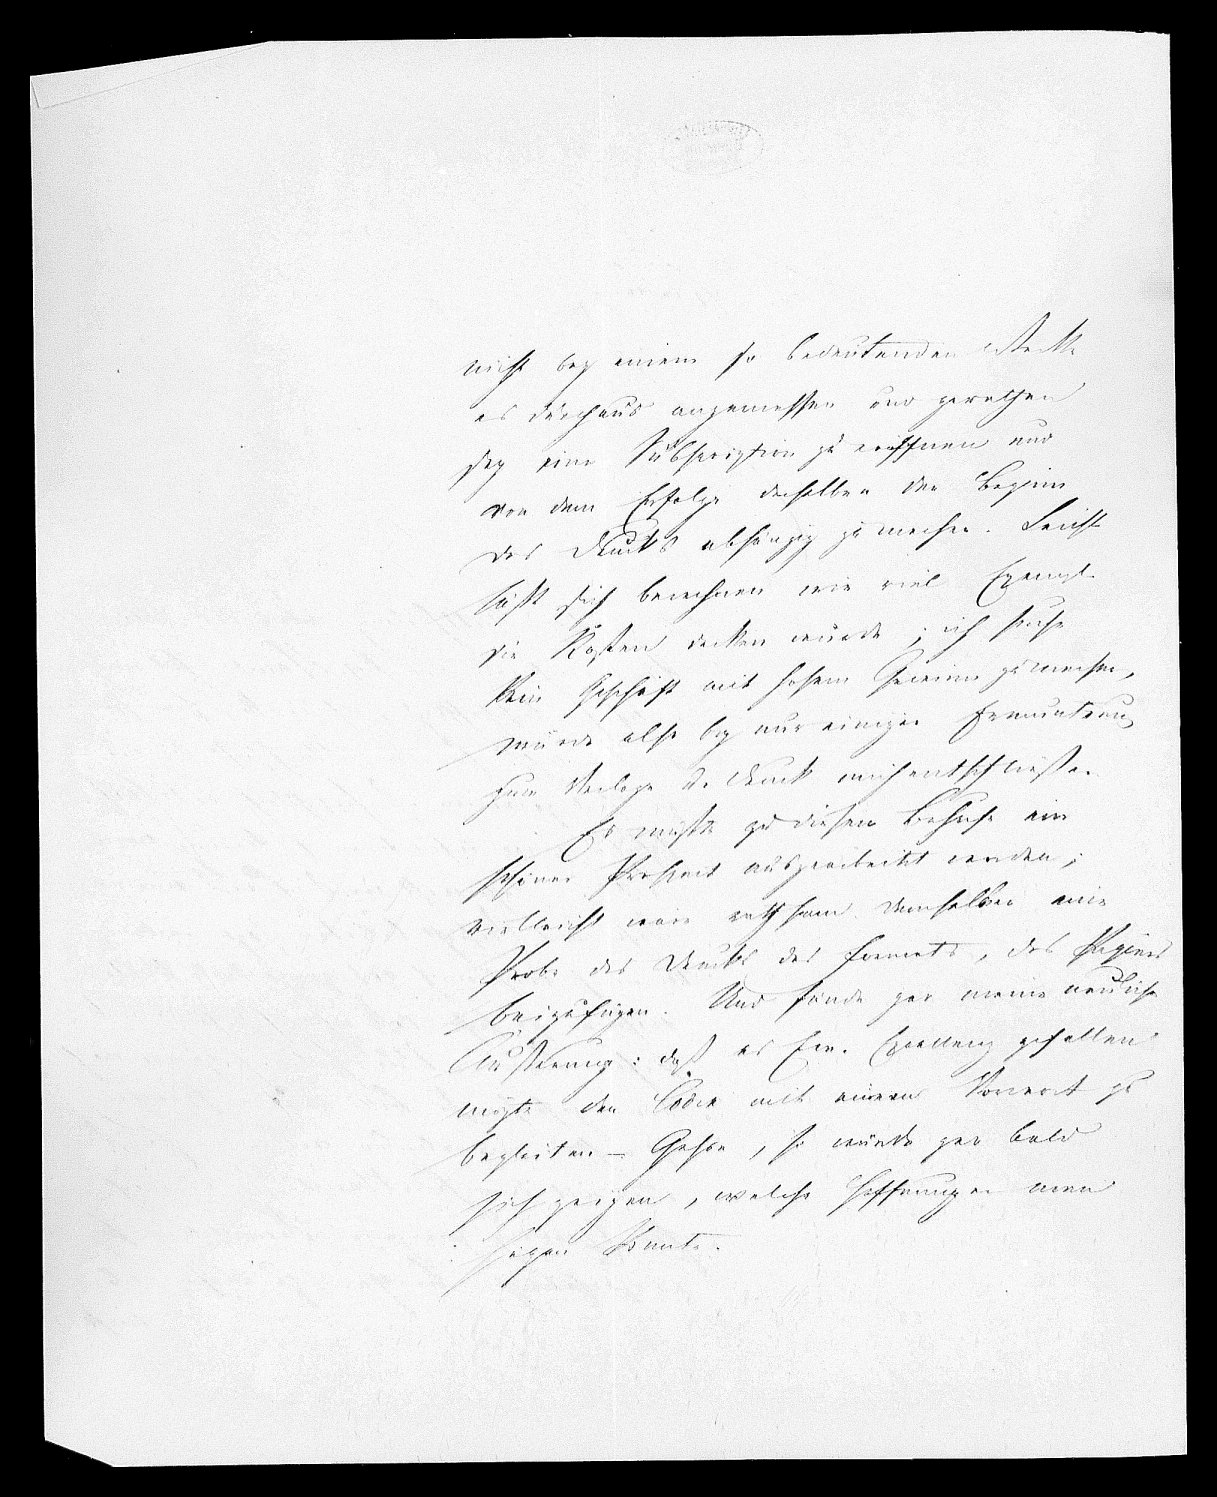 nicht bey einem so bedeutenden Werke
es durchaus angemessen und gerathen
sey eine Subscription zu eröffnen und
von dem Erfolge derselben den Beginn
des Drucks abhängig zu machen. Leicht
läßt sich berechnen wie viel Exempl.
die Kosten decken würde; ich suche
kein Geschäft mit hohem Gewinn zu machen,
würde also bey nur einiger Ermunterung
zum Verlage u. Druck mich entschließen.
Es müßte zu diesem Behufe ein
schöner Prospect ausgearbeitet werden;
vielleicht wäre rathsam demselben eine
Probe des Drucks des Formats, des Papiers
beizufügen. Und fände gar meine neuliche
Äußerung: daß es Ew. Excellenz gefallen
mögte den Codex mit einem Vorwort zu
begleiten – Gehör, so würde gar bald
sich zeigen, welche Hoffnungen man
hegen könnte.